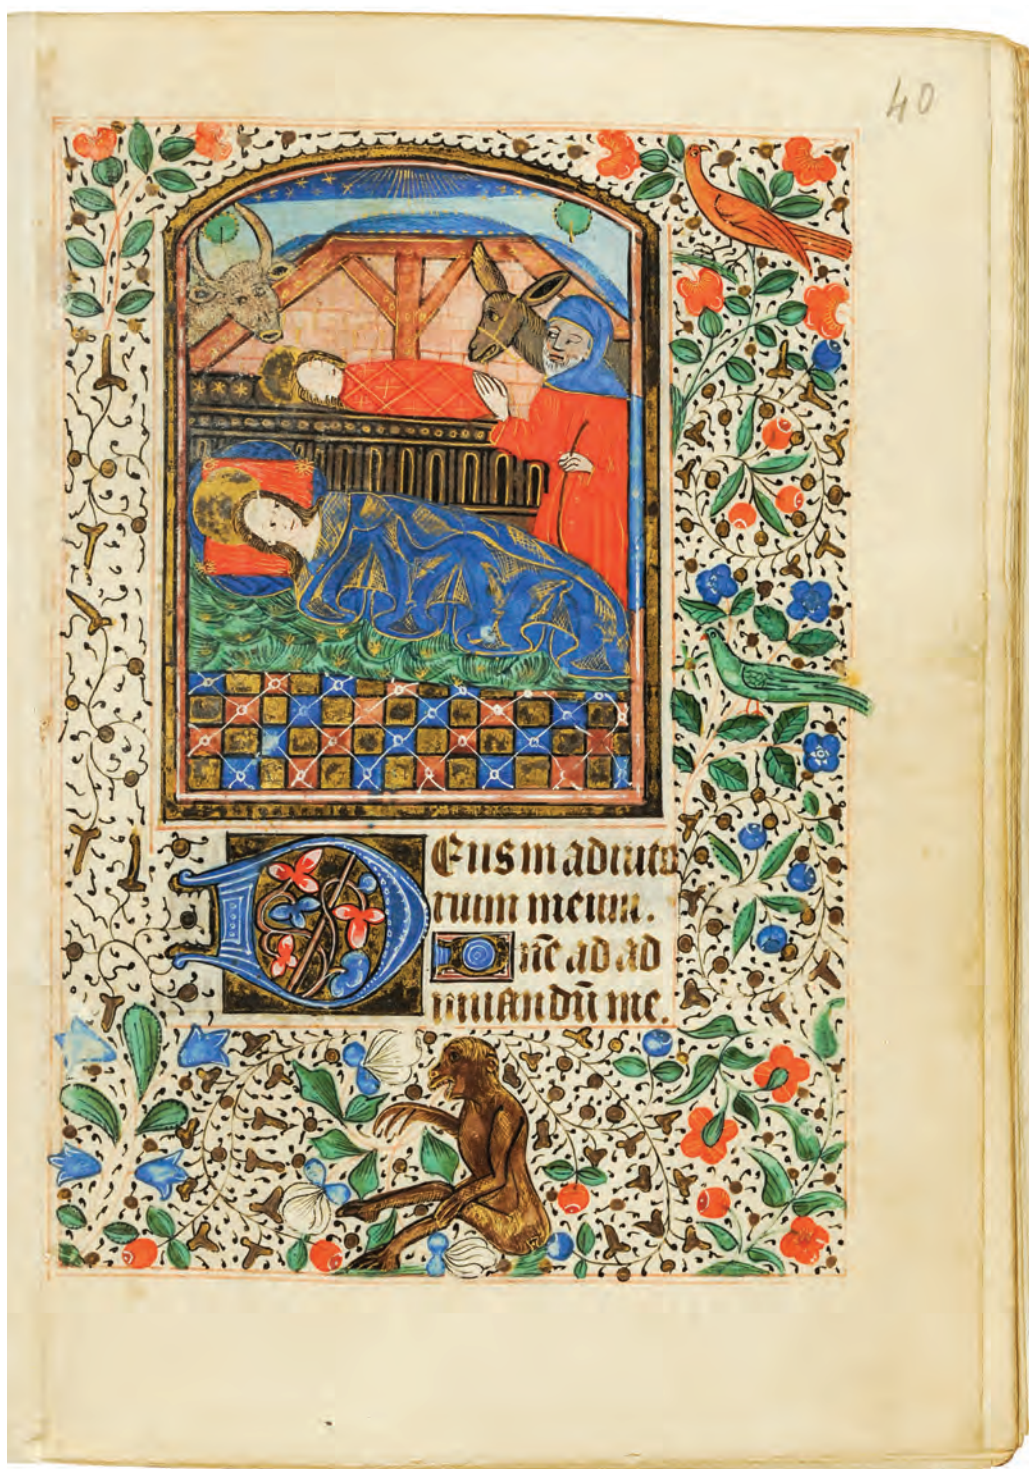 40
Deus in adiuto
rium meum.
Dn̄e ad ad
iuuandū me.